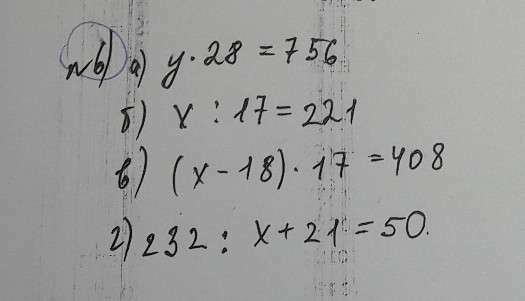 №6) а) y · 28 = 756
б) x : 17 = 221
в) (x - 18) · 17 = 408
г) 232 : x + 21 = 50.